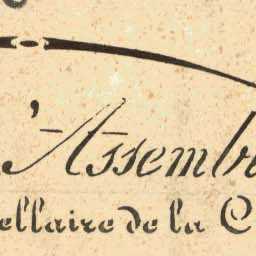 'Assemb
ellaire de la C